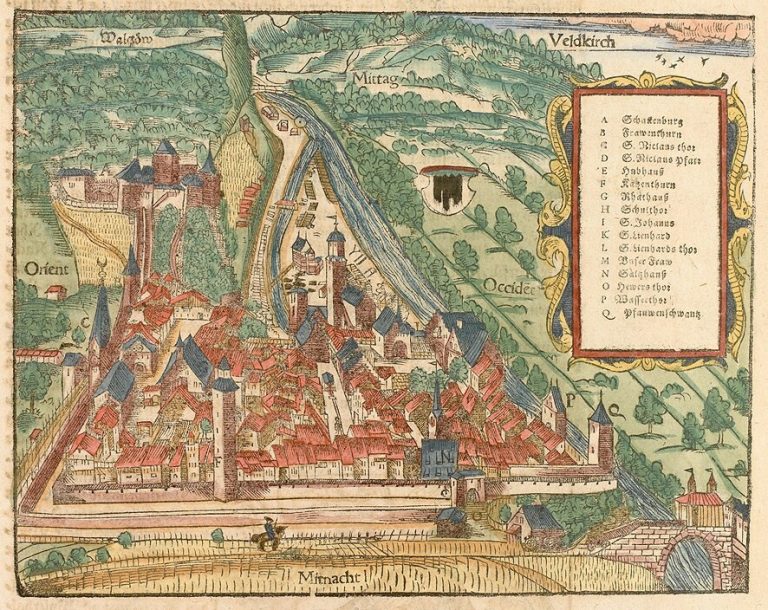 Walgöw
Veldkirch
Mittag
Orient
Occidēt
A Schattenburg
B Frawenthurn
C S. Niclaus thor
D S. Niclaus Pfarr
E Hubhauß
F Katzenthurn
G Rhåthauß
H Schulthor
I S. Johanns
K S. Lienhard
L S. Lienhards thor
M Vnser Fraw
N Saltzhauß
O Hewers thor
P Wasserthor
Q Pfauwenschwantz
YLL
C
F
N
P
Q
Mitnacht